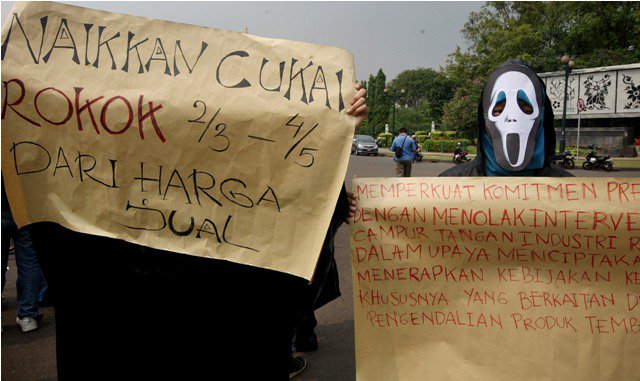 NAIKKAN CUKAI
ROKOK 2/3 - 4/5
DARI HARGA
JUAL
MEMPERKUAT KOMITMEN PRE
DENGAN MENOLAK INTERVE
CAMPUR TANGAN INDUSTRI R
DALAM UPAYA MENCIPTAKA
MENERAPKAN KEBIJAKAN KE
KHUSUSNYA YANG BERKAITAN D
PENGENDALIAN PRODUK TEMB